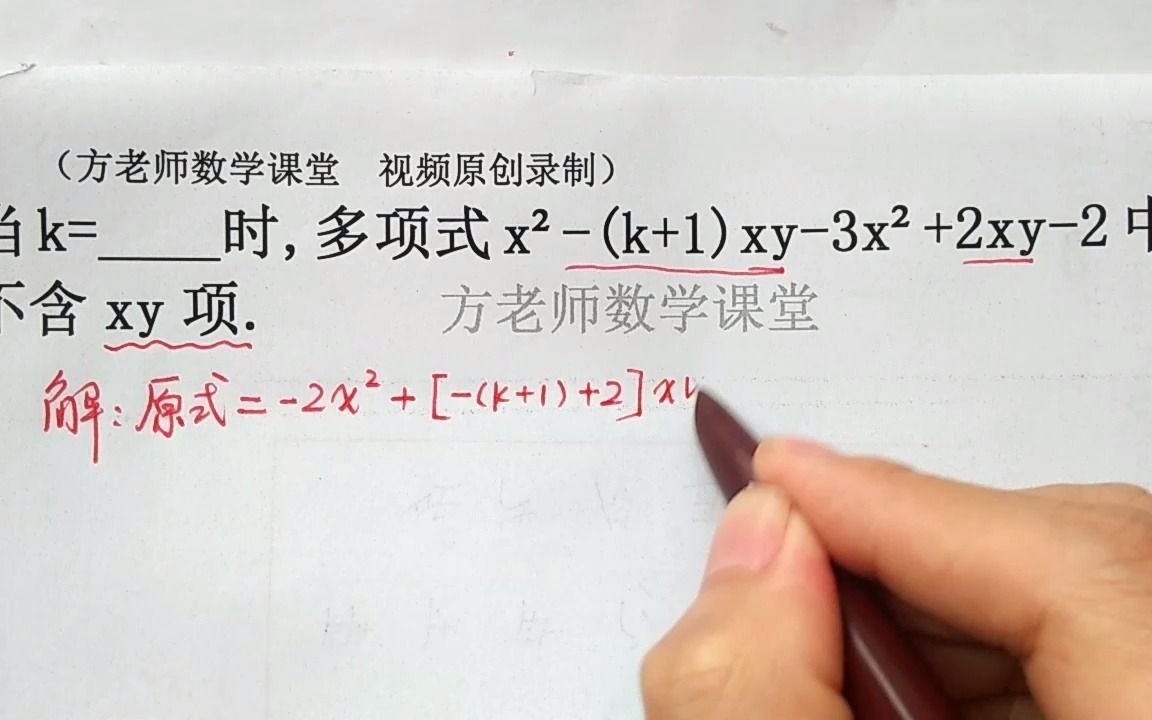 （方老师数学课堂 视频原创录制）
当k=____时,多项式x²-(k+1)xy-3x²+2xy-2中
不含 xy 项.
方老师数学课堂
解:原式=-2x²+[-(k+1)+2]x